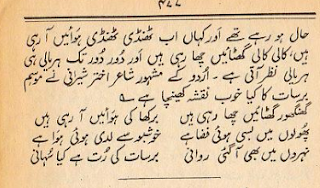 ۴۷۷
حال ہو رہے تھے اور کہاں اب ٹھنڈی ٹھنڈی ہوائیں آ رہی
ہیں، کالی کالی گھٹائیں چھا رہی ہیں اور دُور دُور تک ہریالی ہی
ہریالی نظر آتی ہے۔ اُردو کے مشہور شاعر اختر شیرانی نے موسم
برسات کا کیا خوب نقشہ کھینچا ہے ؎
گھنگھور گھٹائیں چھا رہی ہیں برکھا کی ہوائیں آ رہی ہیں
پھُولوں میں بسی ہوئی فضا ہے خوشبو سے لدی ہوئی ہوا ہے
نہروں میں بھی آ گئی روانی برسات کی رُت ہے کیا سُہانی